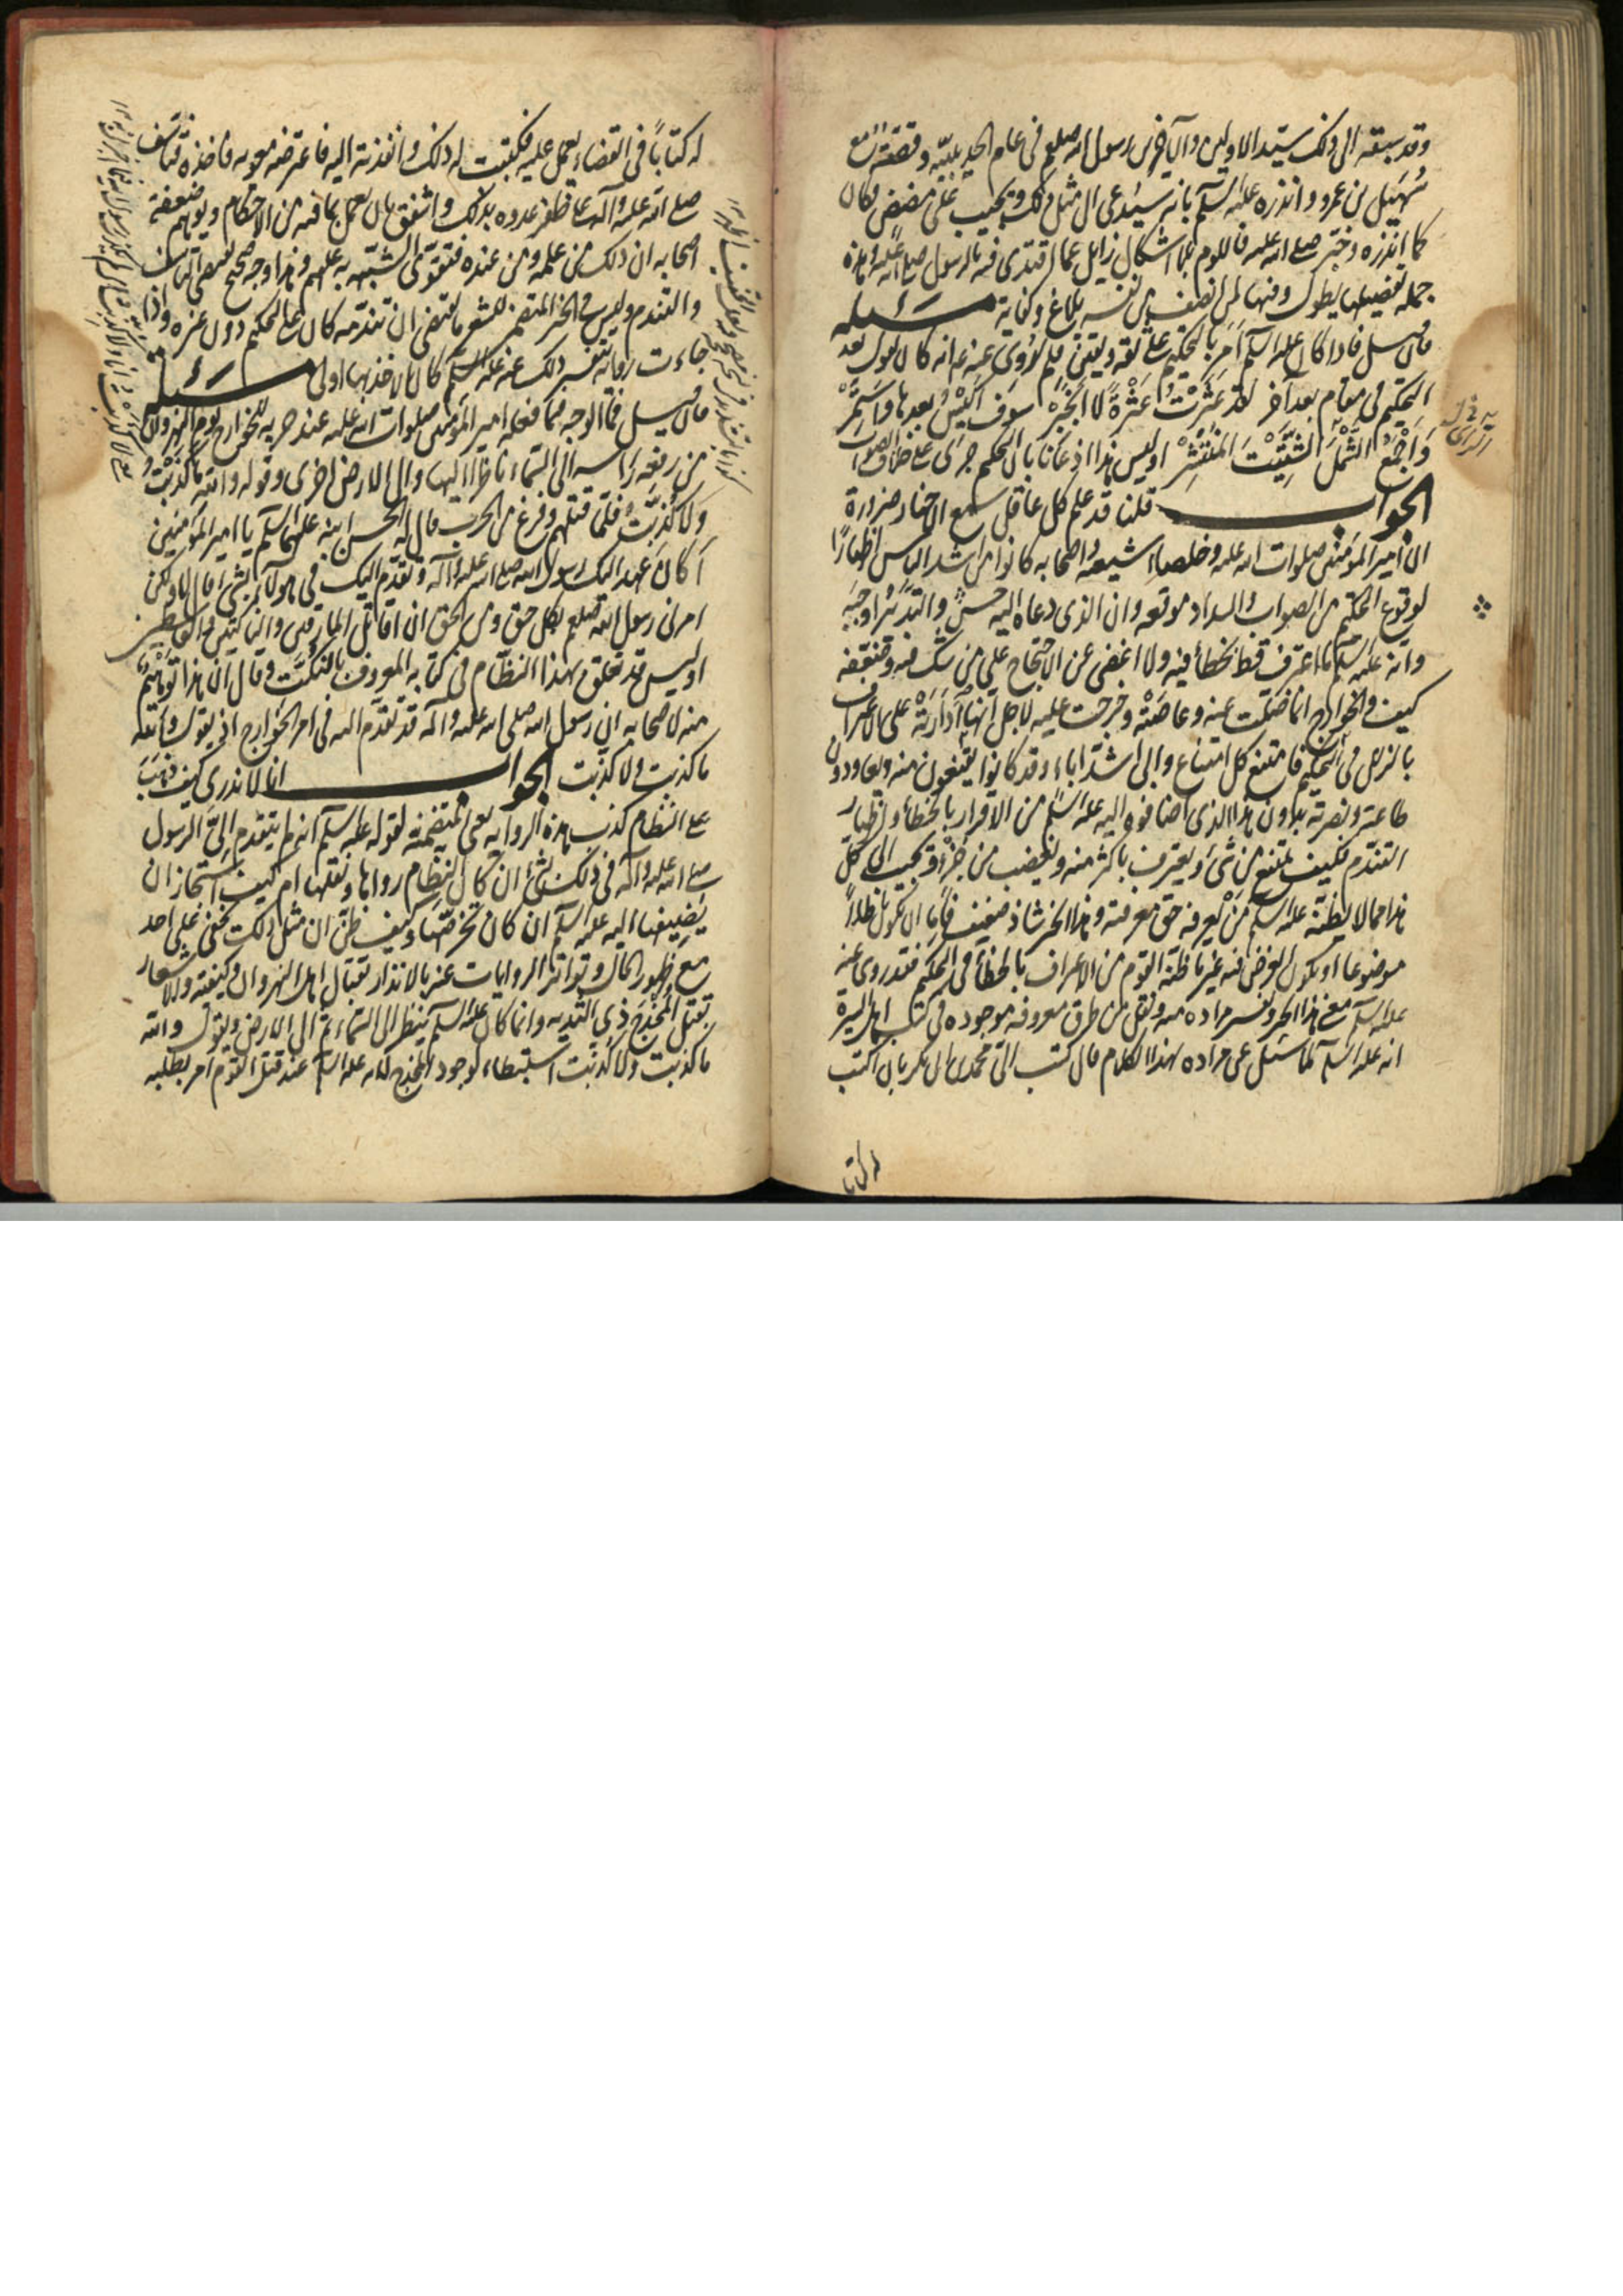 وقد سبقه الى ذلك سيّد الاولين والآخرين رسول الله صلعم فى عام الحديبيّة وقصّته مع
سُهَيل بن عمرو وانذره عليه السلم بانه سيُدعى الى مثل ذلك ويجيب على مضض فكان
كما انذره وخبّر صلى الله عليه فاللوم بلا اشكال زايل عما اقتدى فيه بالرسول صلى الله عليه وهذه
جملة تفصيلها يطول وفيها لمن انصف من نفسه بلاغ وكفاية مسئله
فان قيل فاذا كان عليه السلم اَمَرَ بالتحكيم على ثقة ويقين فلم رُوى عنه انه كان يقول بعد
التحكيم فى مقام بعد آخر لقد عَثَرْتُ عَثْرَةً لا اَنْجَبِرْ سوف اَكِيْسُ بعدها واَسْتَمِرْ
وَاَجْمَعُ الشَّمْلَ الشَّتِيْتَ المُنْتَشِرْ اوليس هذا اذعانا بان التحكيم جرى على خلاف الصواب
الجواب قلنا قد علم كل عاقل سمع الاخبار ضرورة
ان امير المؤمنين صلوات الله عليه وخلصاء شيعته واصحابه كانوا من اشد الناس اظهارًا
لوقوع التحكيم من الصواب والسداد موقعه وان الذى دعاه اليه حسنٌ والتدبير اوجبه
وانّه عليه السلم ما اعترف قط بخطأ فيه ولا اغضى عن الاحتجاج على من شكّ فيه وضعّفه
كيف والخوارج انما ضلّت عنه وعاصَتْه وخرجت عليه لاجل انها اَدَارَتْهُ على الاعتراف
بالزلل فى التحكيم فامتنع كل امتناع وابى اشدّ اباء وقد كانوا يقنعون منه ويعاودون
طاعته ونصرته بدون هذا الذى اضافوه اليه عليه السلم من الاقرار بالخطأ واظهار
التندّم فكيف يمتنع من شئ ويعترف باكثر منه ويغضب من جُزْءٍ ويجيب الى كلّ
هذا مما لا يظنّه عليه السلم مَنْ يعرفه حق معرفته وهذا الخبر شاذ ضعيف فامّا ان يكون باطلاً
موضوعا او يكون الغرض فيه غير ما ظنّه القوم من الاعتراف بالخطأ فى التحكيم فقد روى عنه
عليه السلم معنى هذا الخبر وتفسير مراده منه ونقل من طرق معروفة موجودة فى كتب اهل السيرة
انه عليه السلم لما سئل عن مراده بهذا الكلام قال كتب الىّ محمد بن ابى بكر بان اكتب
له كتابا
له كتابًا فى القضاء يعمل عليه فكتبت له ذلك وانفذته اليه فاعترضه معوية فاخذه فتاسّف
صلى الله عليه وآله على ظفر عدوه بذلك واشفق بان يعمل بما فيه من الاحكام ويوهم ضعفة
اصحابه ان ذلك من علمه ومن عنده فتقوّى الشبهة به عليهم وهذا وجه صحيح يقتضى التاسّف
والتندم وليس فى الخبر المتضمن للشعر ما يقتضى ان تندّمه كان على التحكيم دون غيره واذا
جاءت رواية بتفسير ذلك عنه عليه السلم كان الاخذ بها اولى مسئلة
فان قيل فما الوجه فيما فعله امير المؤمنين صلوات الله عليه عند حربه للخوارج يوم النهروان
من رفعه راسه الى السّماء ناظرا اليها والى الارض اخرى وقوله والله ما كَذَبْتُ
ولا كُذِبْتُ فلمّا قتلهم وفرغ من الحرب قال له الحسن ابنه عليهما السلم يا امير المؤمنين
اَكَانَ عَهِدَ اليك رسول الله صلى الله عليه وآله وتقدّم اليك فى هؤلاء بشئ فقال لا ولكن
امرنى رسول الله صلعم بكل حق ومن الحق ان اقاتل المارقين والناكثين والقاسطين
اوليس قد تعلّق بهذا النظّام فى كتابه المعروف بالنُكَت وقال ان هذا توهيمٌ
منه لاصحابه ان رسول الله صلى الله عليه وآله قد تقدّم اليه فى امر الخوارج اذ يقول والله
ما كَذبت ولا كُذبت الجواب انا لا ندرى كيف ذَهَبَ
على النظام كذب هذه الرواية يعنى المتضمنة لقوله عليه السلم انه لم يتقدم اِلىَّ الرسول
صلى الله عليه وآله فى ذلك بشئ ان كان النظام رواها ونقلها ام كيف استجاز ان
يُضِيفها اليه عليه السلم ان كان تخرّصَها وكيف ظنّ ان مثل ذلك يخفى على احد
مع ظهور الحال وتواتر الروايات عنه بالانذار بقتال اهل النهروان وكيفيته والاشعار
بقتل المُخْدَج ذى الثديه وانما كان عليه السلم ينظر الى السّماء ثم الى الارض ويقول والله
ما كَذبت ولا كُذبت استبطاء لوجود المخدج لانه عليه السلم عند قتل القوم اَمَر بطلبه